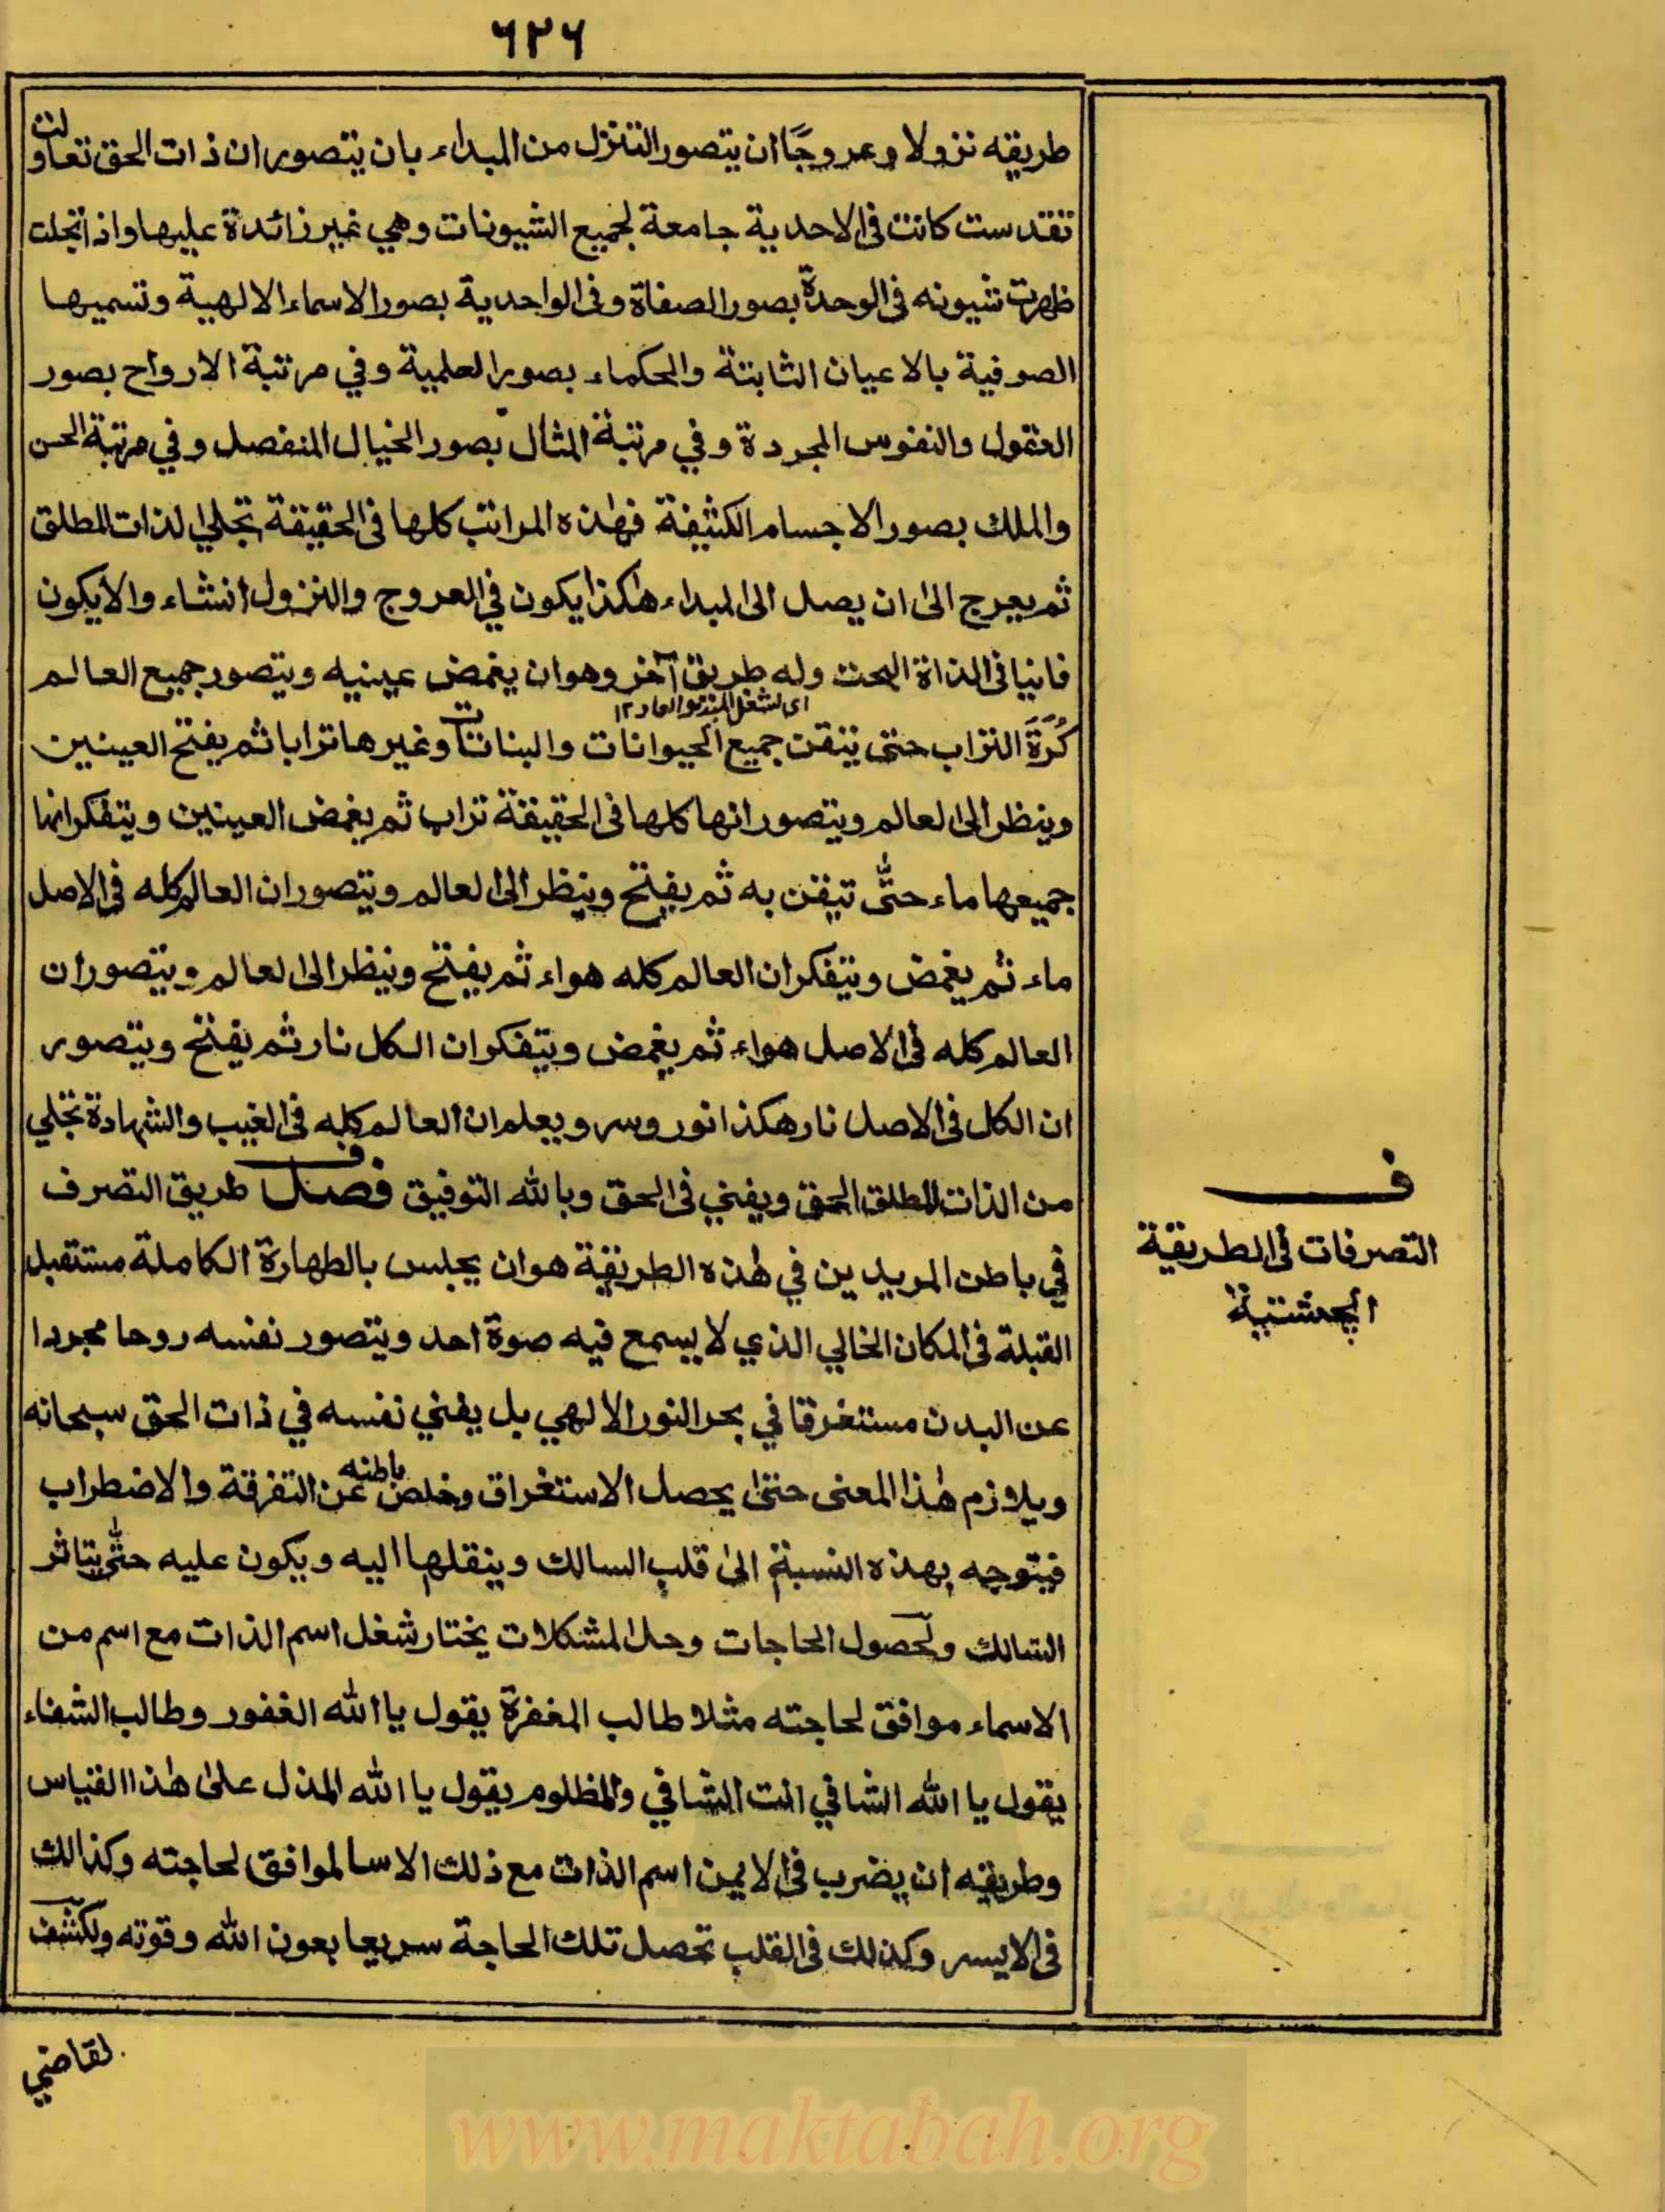 ٦٢٦
طريقه نزولا وعروجًا ان يتصور التنزل من المبداء بان يتصور ان ذات الحق تعالت و
تقدست كانت فى الاحدية جامعة لجميع الشيونات وهي غير زائدة عليها واذا تجلت
ظهرت شيونه فى الوحدة بصور الصفاة وفى الواحدية بصور الاسماء الالهية وتسميها
الصوفية بالاعيان الثابتة والحكماء بصور العلمية وفي مرتبة الارواح بصور
العقول والنفوس المجردة وفي مرتبة المثال بصور الخيال المنفصل وفي مرتبة الحس
والملك بصور الاجسام الكثيفة فهذه المراتب كلها فى الحقيقة تجلي الذات المطلق
ثم يعرج الى ان يصل الى المبداء هٰكذا يكون في العروج والنزول انشاء والا يكون
فانيا فى الذاة البحت وله طريق آخر وهو ان يغمض عينيه ويتصور جميع العالم
كُرَةَ التراب حتى يتقن جميع الحيوانات والبناتات وغيرها ترابا ثم يفتح العينين
وينظر الى العالم ويتصور انها كلها فى الحقيقة تراب ثم يغمض العينين ويتفكر انها
جميعها ماء حتّٰى تيقن به ثم يفتح وينظر الى العالم ويتصور ان العالم كله فى الاصل
ماء ثم يغمض ويتفكر ان العالم كله هواء ثم يفتح وينظر الى العالم ويتصور ان
العالم كله فى الاصل هواء ثم يغمض ويتفكر ان الكل نار ثم يفتح ويتصور
ان الكل فى الاصل نار هكذا نور وسر ويعلم ان العالم كله فى الغيب والشهادة تجلي
من الذات المطلق الحق ويفنى فى الحق وبالله التوفيق فصل طريق التصرف
في باطن المريدين في هٰذه الطريقة هو ان يجلس بالطهارة الكاملة مستقبل
القبلة فى المكان الخالي الذي لا يسمع فيه صوة احد ويتصور نفسه روحا مجردا
عن البدن مستغرقا في بحر النور الالهي بل يفني نفسه في ذات الحق سبحانه
ويلازم هٰذا المعنى حتىٰ يحصل الاستغراق وخلص باطنه عن التفرقة والاضطراب
فيتوجه بهذه النسبة الىٰ قلب السالك وينقلها اليه ويكون عليه حتّٰى يتاثر
السالك ولحصول الحاجات وحل المشكلات يختار شغل اسم الذات مع اسم من
الاسماء موافق لحاجته مثلا طالب المغفرة يقول يا الله الغفور وطالب الشفاء
يقول يا الله الشافي انت الشافي والمظلوم يقول يا الله المذل علىٰ هٰذا القياس
وطريقه ان يضرب فى الايمن اسم الذات مع ذلك الاسا لموافق لحاجته وكذالك
فى الايسر وكذلك فى القلب تحصل تلك الحاجة سريعا بعون الله وقوته ولكشف
ف
التصرفات فى الطريقة
الجشتية
لقاضي
www.maktabah.org